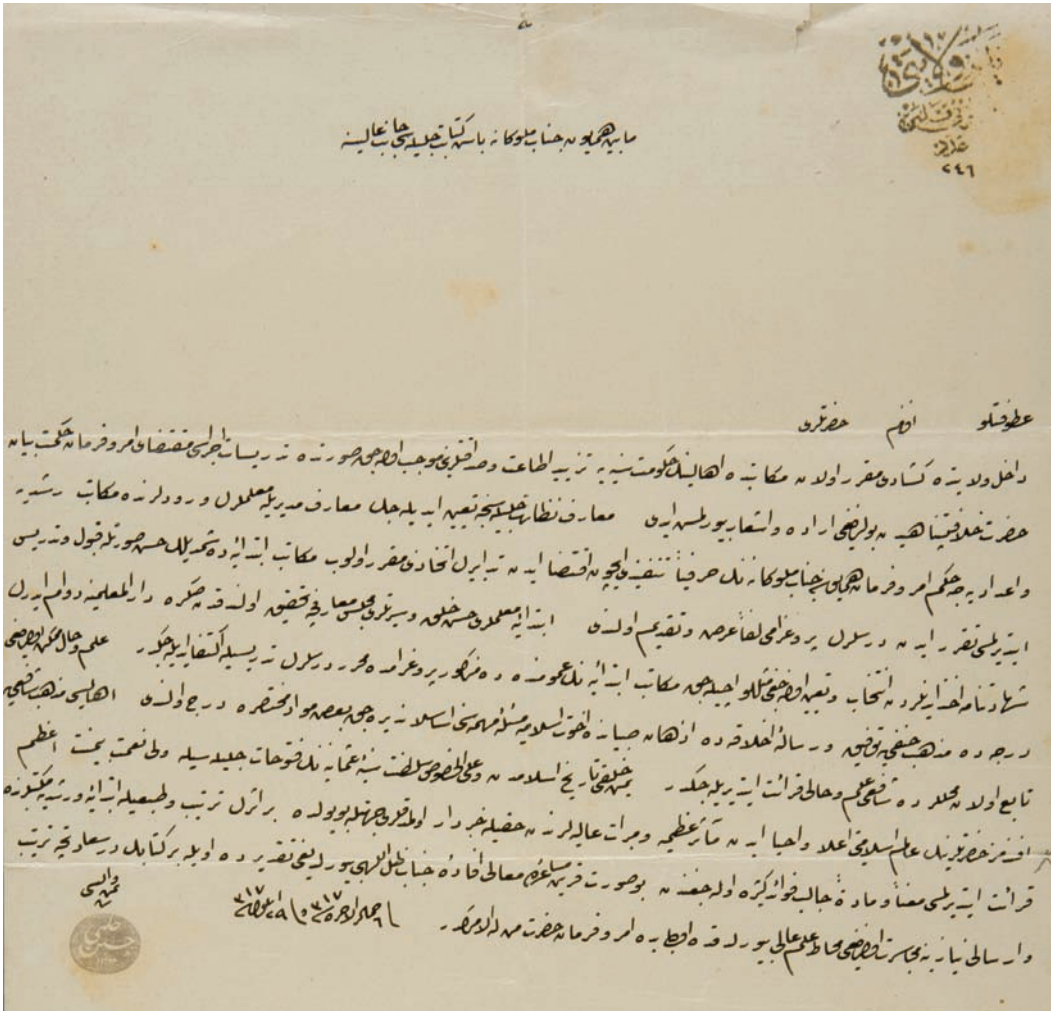 ولايتى
عدد
٢٤٦
مابين همايون جناب ملوكانه باش كتابت جليله سى جانب عاليسنه
عطوفتلو افندم حضرتلرى
داخل ولايتده كشادى مقرر اولان مكاتبده اهالينك حكومت سنيه يه تزييد اطاعت وصداقتلرينى موجب اوله جق صورتده تدريسات اجراسى مقتضاى امر وفرمان حكمت بيان
حضرت خلافتپناهيدن بولنديغى اراده واشعار بيورلمش ايدى معارف نظارت جليله سنجه تعيين ايديله جك معارف مديريله معلملرك ورودلرنده مكاتب رشديه
واعداديه جه حكم امر وفرمان همايون جناب ملوكانه نك حرفياً تنفيذى ايچون اقتضا ايدن تدابيرك اتخاذى مقرر اولوب مكاتب ابتدائيه ده شمديلك حسن صورتله قبول وتدريس
ايتديرلمسى تقرر ايدن درسلرك پروغرامى لفاً عرض وتقديم اولندى ابتدائيه معلملرى حسن خلق وسيرتلرى مجلس معارفجه تحقيق اولندقدن صكره دار المعلمينه دوام ايدرك
شهادتنامه اخذ ايدنلردن انتخاب وتعيين اوله جق مكاتب ابتدائيه نك عمومنده ده مذكور پروغرامده محرر درسلرك تدريسيله اكتفا ايديله جكدر علم وحال ممكن اولديغى
درجه ده مذهب حنفى يه توفيق ورساله اخلاقده ده اذهان صبيانه اخوت اسلاميه مسئله مهمه سنى اساسلانديره جق بعض مواد مختصره درج اولندى اهاليسى مذهب شافعى يه
تابع اولان محللرده شافعى علم وحالى قرائت ايتديريله جكدر يمن خلقى تاريخ اسلامدن وعلى الخصوص سلطنت سنيه عثمانيه نك فتوحات جليله سيله ولى نعمت بيمنت اعظم
افندمز حضرتلرينك عالم اسلاميتى اعلا واحيا ايدن مآثر عظيمه ومبرات عاليه لرندن حقيله خبردار اولمدقلرى جهتله بو يولده بر اثرك ترتيب وطبعيله ابتدائيه ورشديه مكتبلرنده
قرائت ايتديرلمسى معناً ومادةً جالب فوائد كثيره اوله جغندن بو صورت قرين مساعده معالى افاده جناب ظل اللهى بيورلديغى تقديرده اويله بر كتابك در سعادتجه ترتيب
وارسالى نيازينه مجاسرت اولنديغى محاط علم عالى بيورلدقده اولبابده امر وفرمان حضرت من له الامركدر
يمن واليسى
حسين حلمى